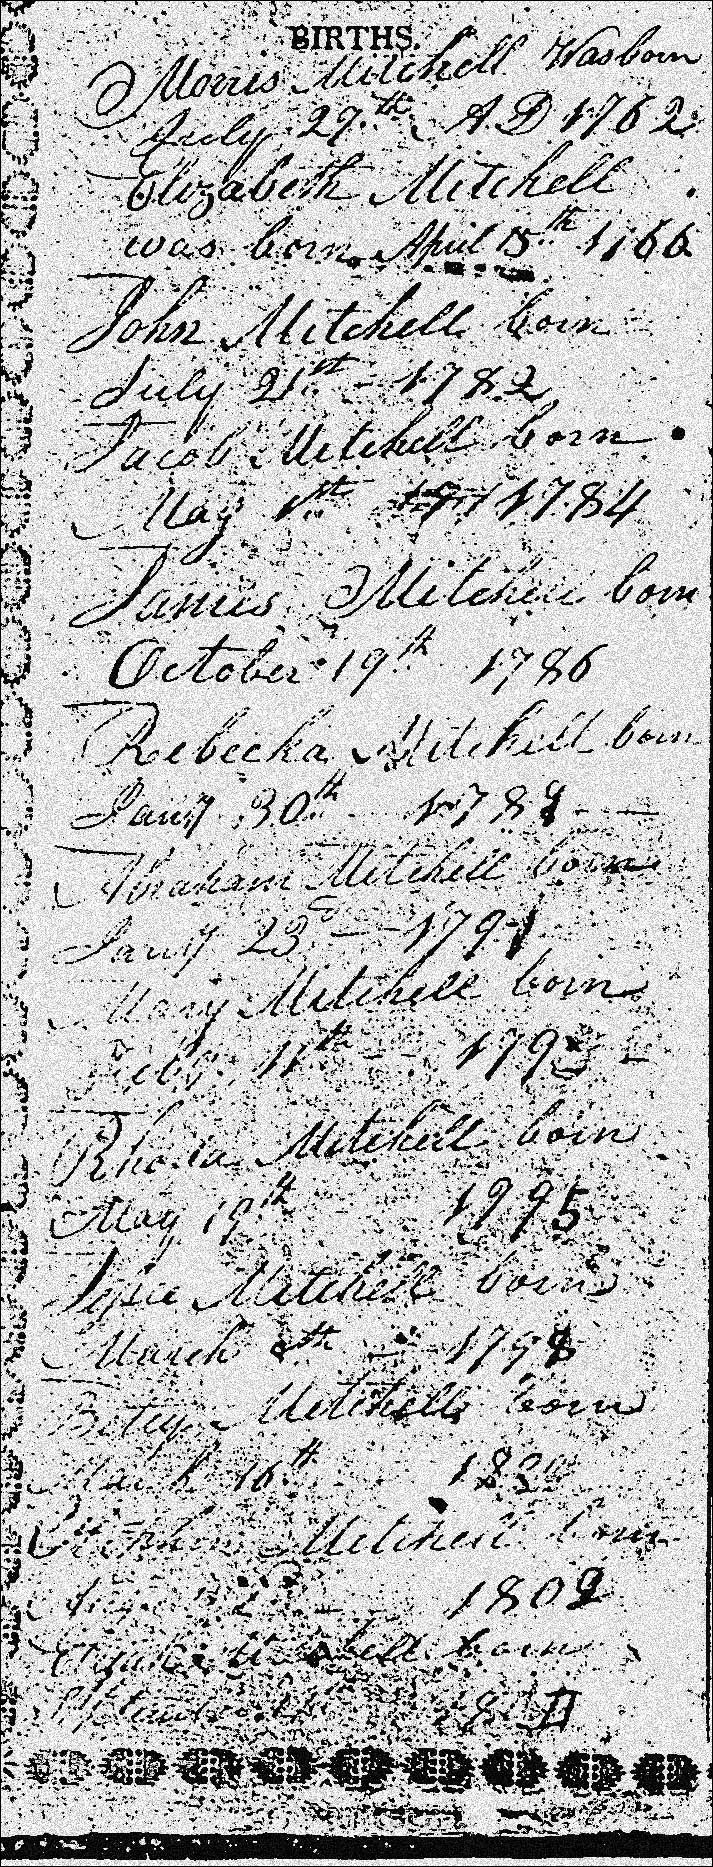 BIRTHS.
Morris Mitchell Was born
July 27th A D 1762
Elizabeth Mitchell
was born April 15th 1766
John Mitchell born
July 21st - 1782
Jacob Mitchell born
May 1st 1784
James Mitchell born
October 19th 1786
Rebecka Mitchell born
Jany 30th 1789
Abraham Mitchell born
Jany 23d - 1791
Mary Mitchell born
Feby 11th 1793
Rhoda Mitchell born
May 19th 1795
Mitchell born
March th 1798
Betsy Mitchell born
March 16th
Mitchell born
1802
born